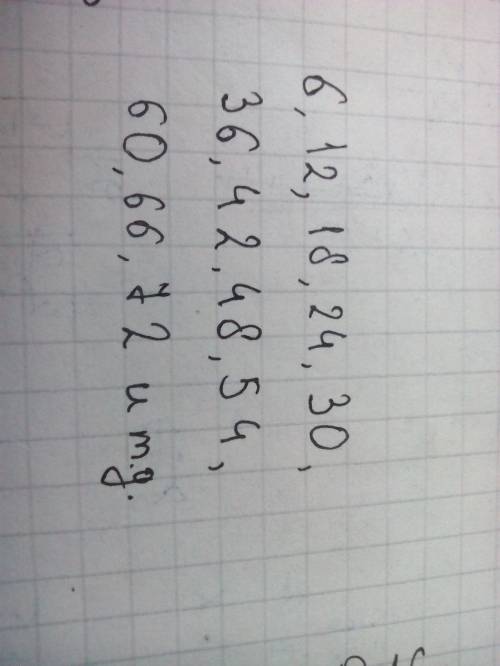 6, 12, 18, 24, 30,
36, 42, 48, 54,
60, 66, 72 и т.д.